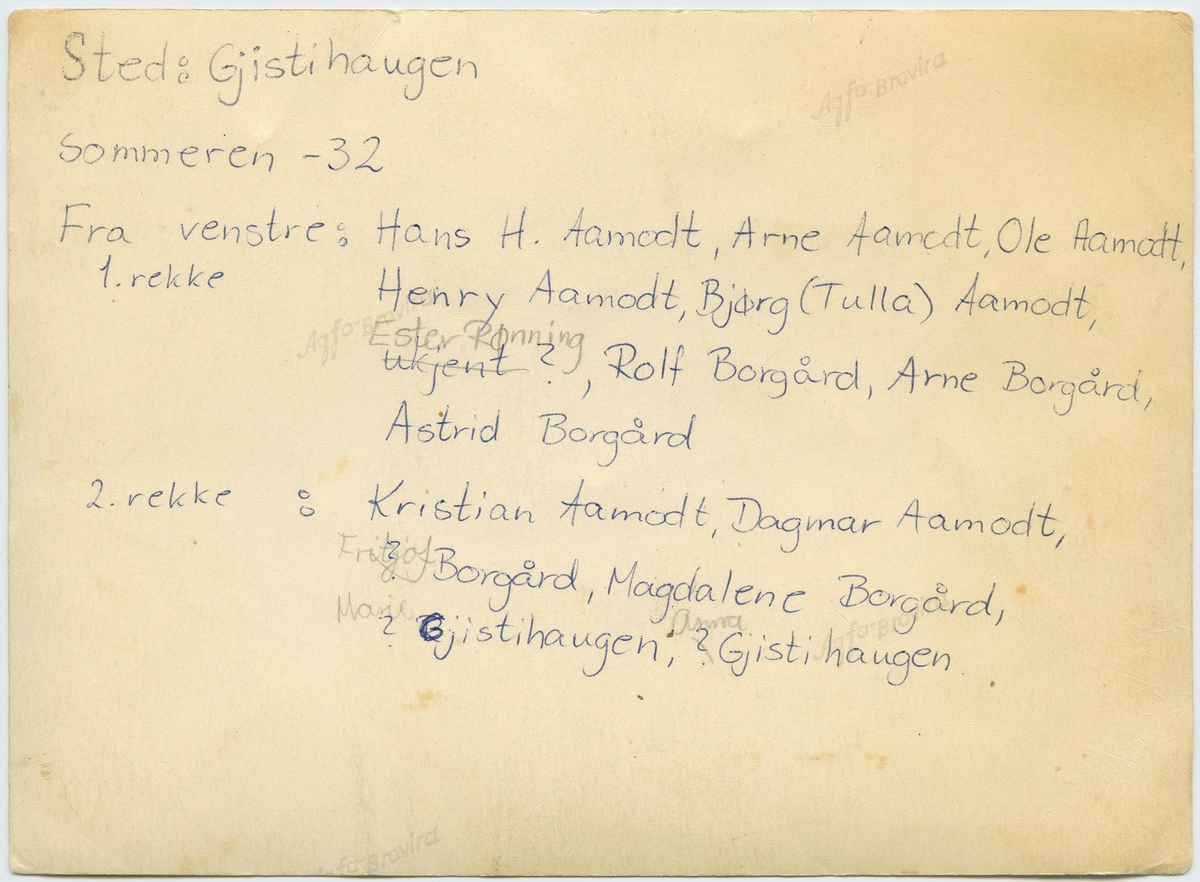 Sted: Gjistihaugen
Agfa-Brovira
Sommeren -32
Fra venstre: Hans H. Aamodt, Arne Aamodt, Ole Aamodt,
1. rekke Henry Aamodt, Bjørg (Tulla) Aamodt,
Agfa-Brovira
Ester Rønning
ukjent ?, Rolf Borgård, Arne Borgård,
Astrid Borgård
2. rekke : Kristian Aamodt, Dagmar Aamodt,
Fritjof
? Borgård, Magdalene Borgård,
Marie Anna Agfa-Brovira
? Gjistihaugen, ? Gjistihaugen
Agfa-Brovira